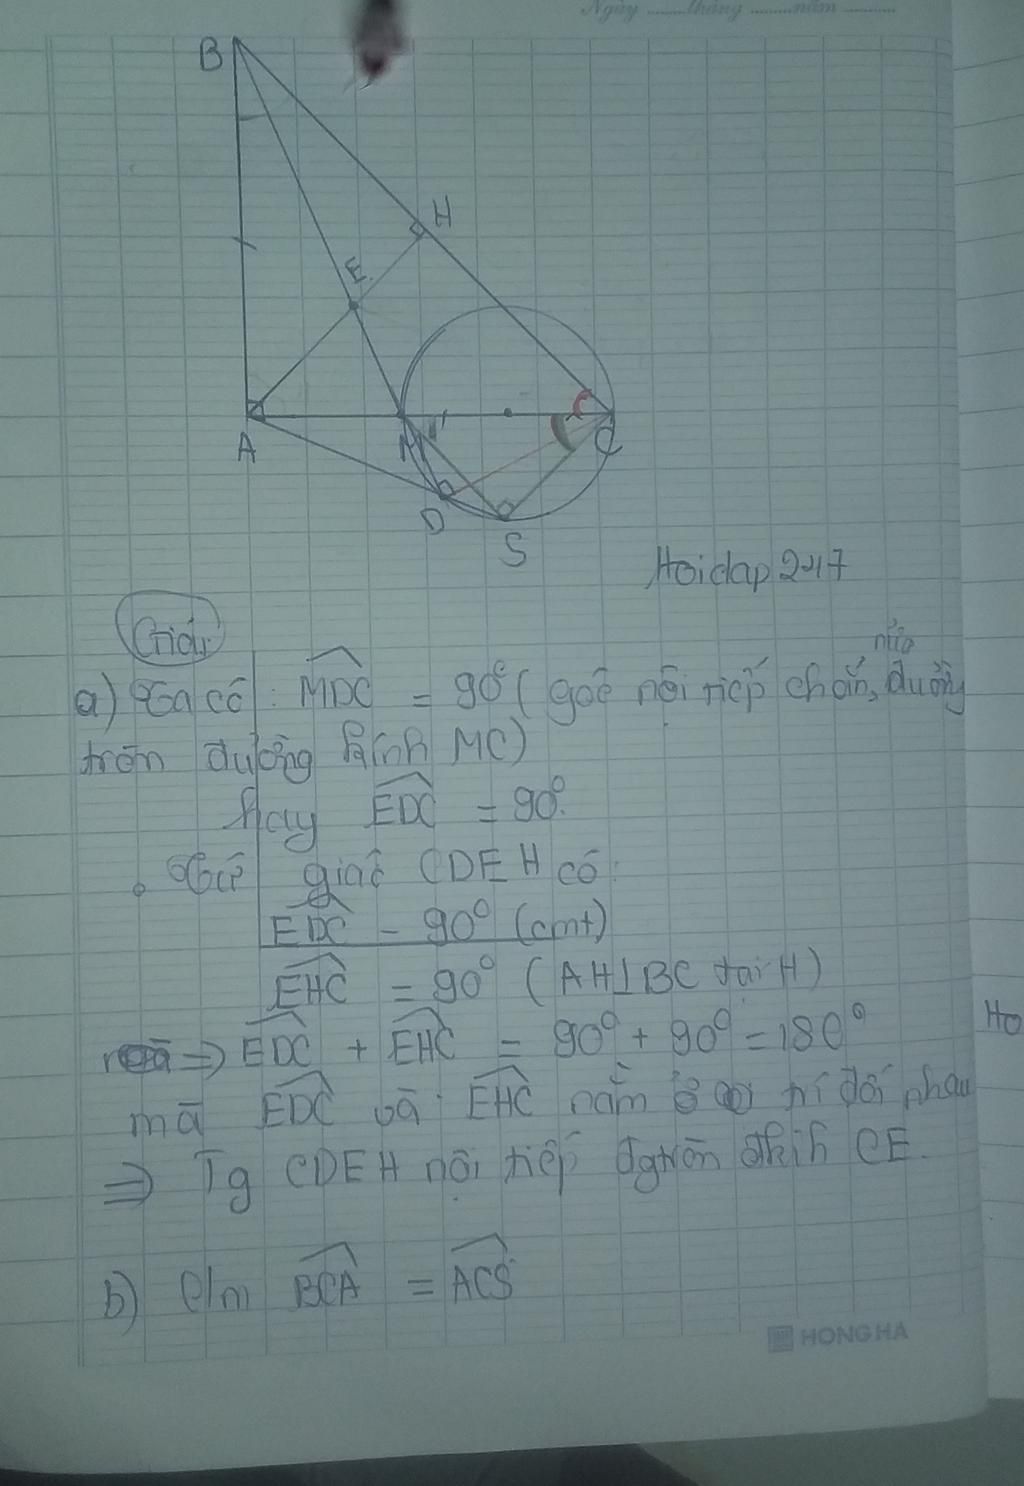 Ngày ........ tháng ........ năm ........
B
H
E
A
M
C
D
S
Hoidap247
Giải
nửa
a) Ta có: MDC = 90° (góc nội tiếp chắn, đường
tròn đường kính MC)
hay EDC = 90°.
. Tứ giác CDEH có:
EDC = 90° (cmt)
EHC = 90° (AH⊥BC tại H)
⇒ EDC + EHC = 90° + 90° = 180°
Ho
mà EDC và EHC nằm ở vị trí đối nhau
⇒ Tg CDEH nội tiếp đgtròn đkíh CE.
b) C/m BCA = ACS
HONG HA